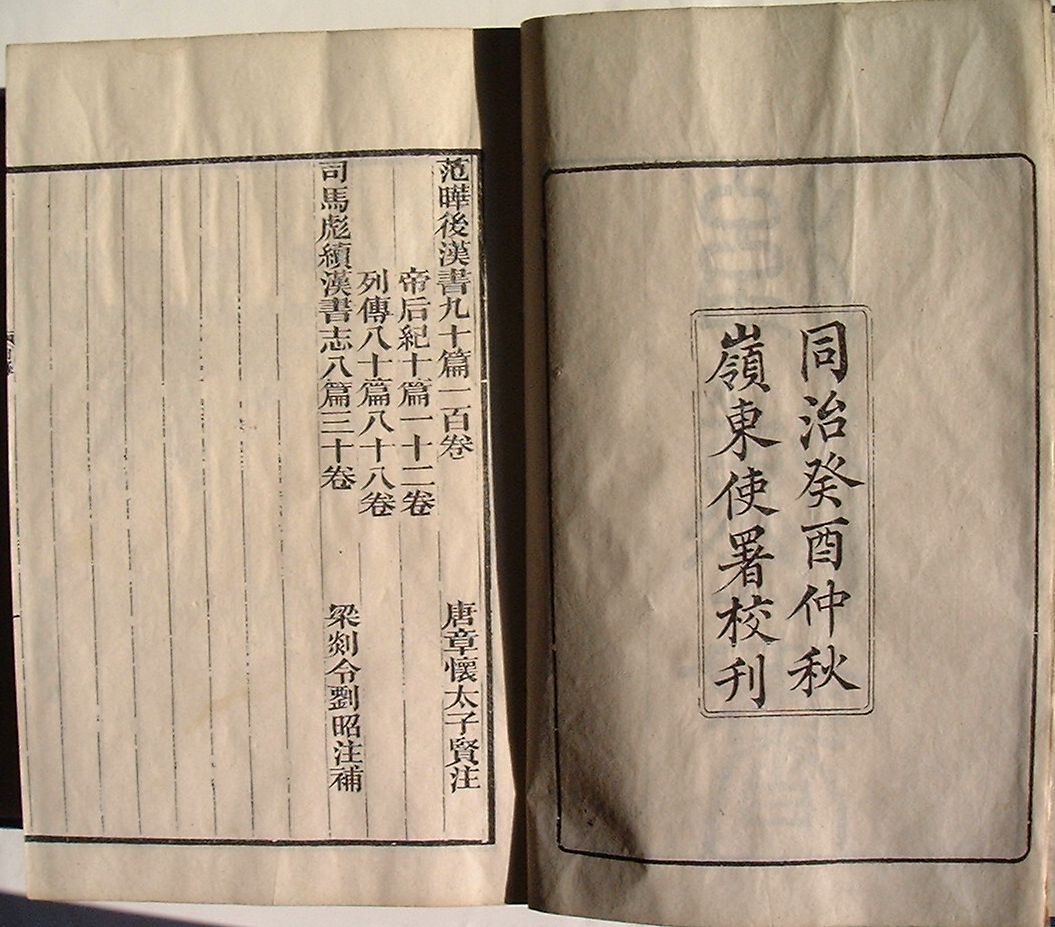 同治癸酉仲秋
嶺東使署校刊
范曄後漢書九十篇一百卷 唐章懷太子賢注
帝后紀十篇一十二卷
列傳八十篇八十八卷
司馬彪續漢書志八篇三十卷 梁剡令劉昭注補